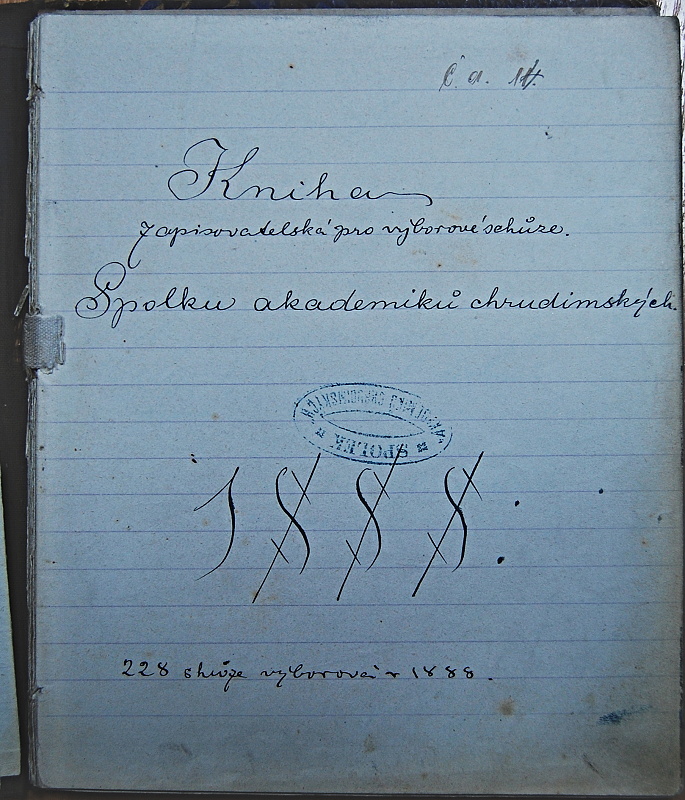 Č. a. 14.
Kniha
zapisovatelská pro výborové schůze.
Spolku akademiků chrudimských.
SPOLEK
AKADEMIKŮ CHRUDIMSKÝCH
1888.
228 schůze výborová r 1888.